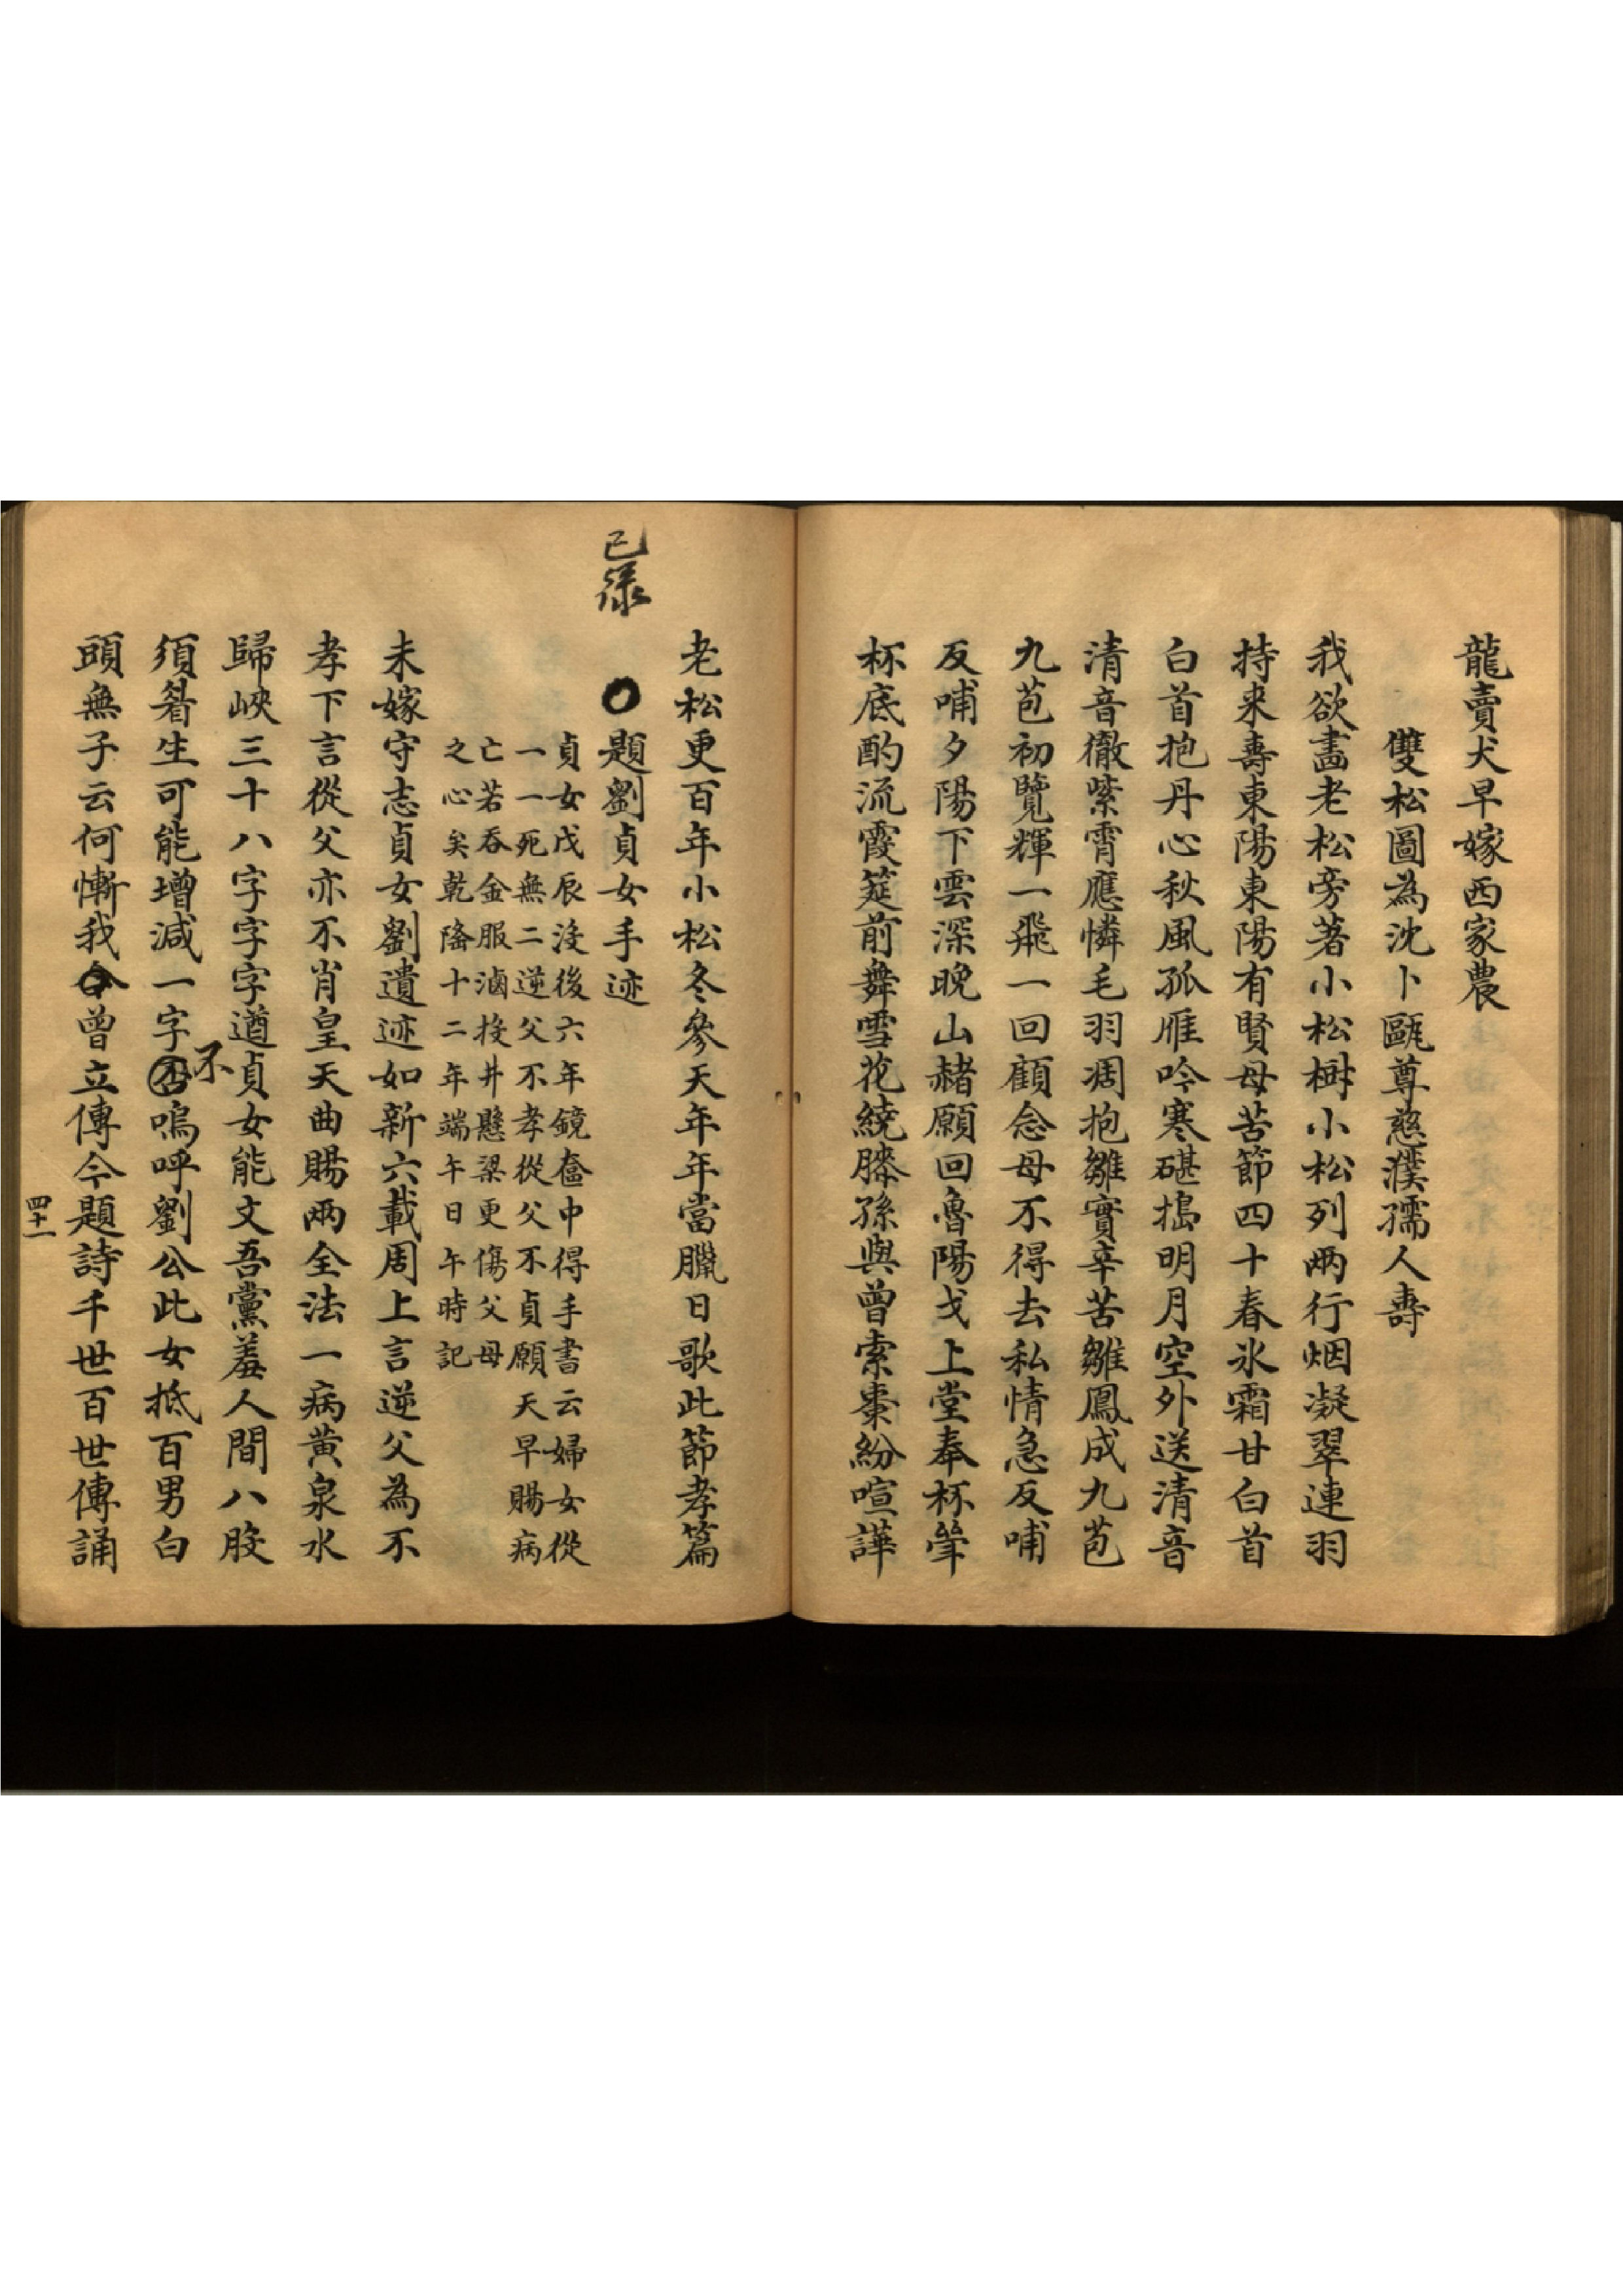 龍賣犬早嫁西家農
雙松圖為沈卜甌尊慈濮孺人壽
我欲畵老松旁著小松樹小松列兩行烟凝翠連羽
持来壽東陽東陽有賢母苦節四十春氷霜甘白首
白首抱丹心秋風孤雁吟寒碪搗明月空外送清音
清音徹紫霄應憐毛羽凋抱雛實辛苦雛鳳成九苞
九苞初覽輝一飛一回顧念母不得去私情急反哺
反哺夕陽下雲深晚山赭願回魯陽戈上堂奉杯斝
杯底酌流霞筵前舞雪花繞膝孫與曾索棗紛喧譁
老松更百年小松冬參天年年當臘日歌此節孝篇
已录
題劉貞女手迹
貞女戊辰沒後六年鏡奩中得手書云婦女從
一一死無二逆父不孝從父不貞願天早賜病
亡若吞金服滷投井懸梁更傷父母
之心矣乾隆十二年端午日午時記
未嫁守志貞女劉遺迹如新六載周上言逆父為不
孝下言從父亦不肖皇天曲賜兩全法一病黄泉水
歸峽三十八字字字遒貞女能文吾黨羞人間八股
須眉生可能增減一字否不嗚呼劉公此女抵百男白
頭無子云何慚我今曾立傳今題詩千世百世傳誦
四十一